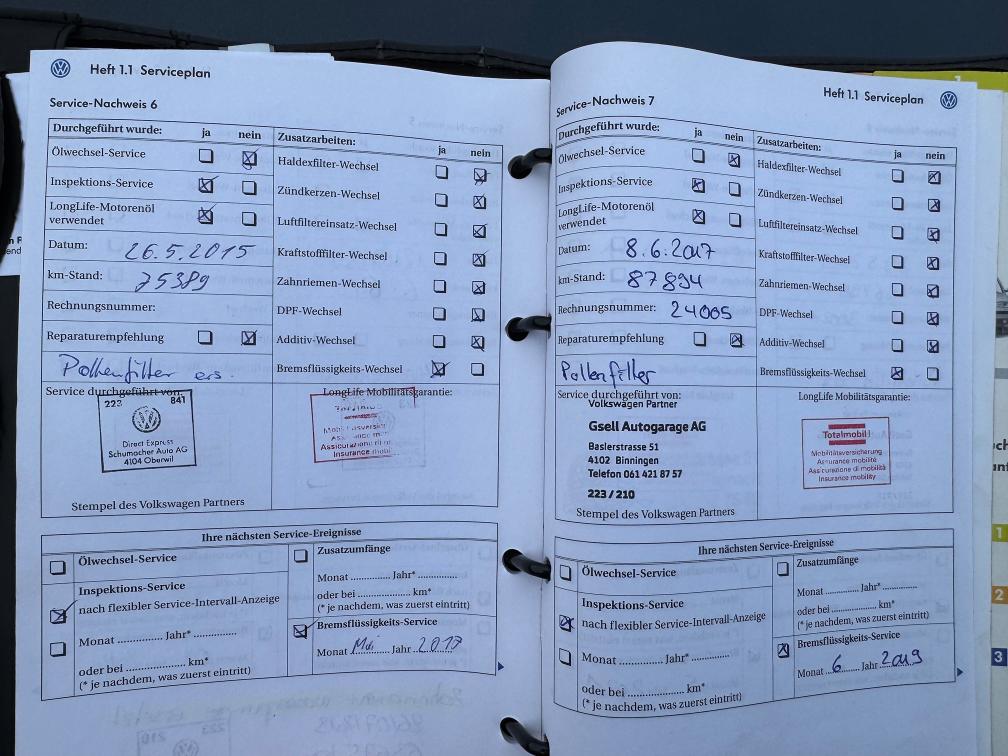 Heft 1.1 Serviceplan
Service-Nachweis 6
Durchgeführt wurde: ja nein
Ölwechsel-Service
Inspektions-Service
LongLife-Motorenöl
verwendet
Datum: 26.5.2015
km-Stand: 75389
Rechnungsnummer:
Reparaturempfehlung
Pollenfilter ers.
Zusatzarbeiten: ja nein
Haldexfilter-Wechsel
Zündkerzen-Wechsel
Luftfiltereinsatz-Wechsel
Kraftstofffilter-Wechsel
Zahnriemen-Wechsel
DPF-Wechsel
Additiv-Wechsel
Bremsflüssigkeits-Wechsel
Service durchgeführt von:
223 841
Direct Express
Schumacher Auto AG
4104 Oberwil
Stempel des Volkswagen Partners
LongLife Mobilitätsgarantie:
Insurance mobi
Ihre nächsten Service-Ereignisse
Ölwechsel-Service
Inspektions-Service
nach flexibler Service-Intervall-Anzeige
Monat .............. Jahr* ..............
oder bei .................. km*
(* je nachdem, was zuerst eintritt)
Zusatzumfänge
Monat ............. Jahr* .............
oder bei .................. km*
(* je nachdem, was zuerst eintritt)
Bremsflüssigkeits-Service
Monat Mai Jahr 2017
Heft 1.1 Serviceplan
Service-Nachweis 7
Durchgeführt wurde: ja nein
Ölwechsel-Service
Inspektions-Service
LongLife-Motorenöl
verwendet
Datum: 8.6.2017
km-Stand: 87894
Rechnungsnummer: 24005
Reparaturempfehlung
Pollenfilter
Zusatzarbeiten: ja nein
Haldexfilter-Wechsel
Zündkerzen-Wechsel
Luftfiltereinsatz-Wechsel
Kraftstofffilter-Wechsel
Zahnriemen-Wechsel
DPF-Wechsel
Additiv-Wechsel
Bremsflüssigkeits-Wechsel
Service durchgeführt von:
Volkswagen Partner
Gsell Autogarage AG
Baslerstrasse 51
4102 Binningen
Telefon 061 421 87 57
223 / 210
Stempel des Volkswagen Partners
LongLife Mobilitätsgarantie:
Totalmobil!
Mobilitätsversicherung
Assurance mobilité
Assicurazione di mobilità
Insurance mobility
Ihre nächsten Service-Ereignisse
Ölwechsel-Service
Inspektions-Service
nach flexibler Service-Intervall-Anzeige
Monat .............. Jahr* ..............
oder bei .................. km*
(* je nachdem, was zuerst eintritt)
Zusatzumfänge
Monat ............. Jahr* .............
oder bei .................. km*
(* je nachdem, was zuerst eintritt)
Bremsflüssigkeits-Service
Monat 6 Jahr 2019
1
2
3